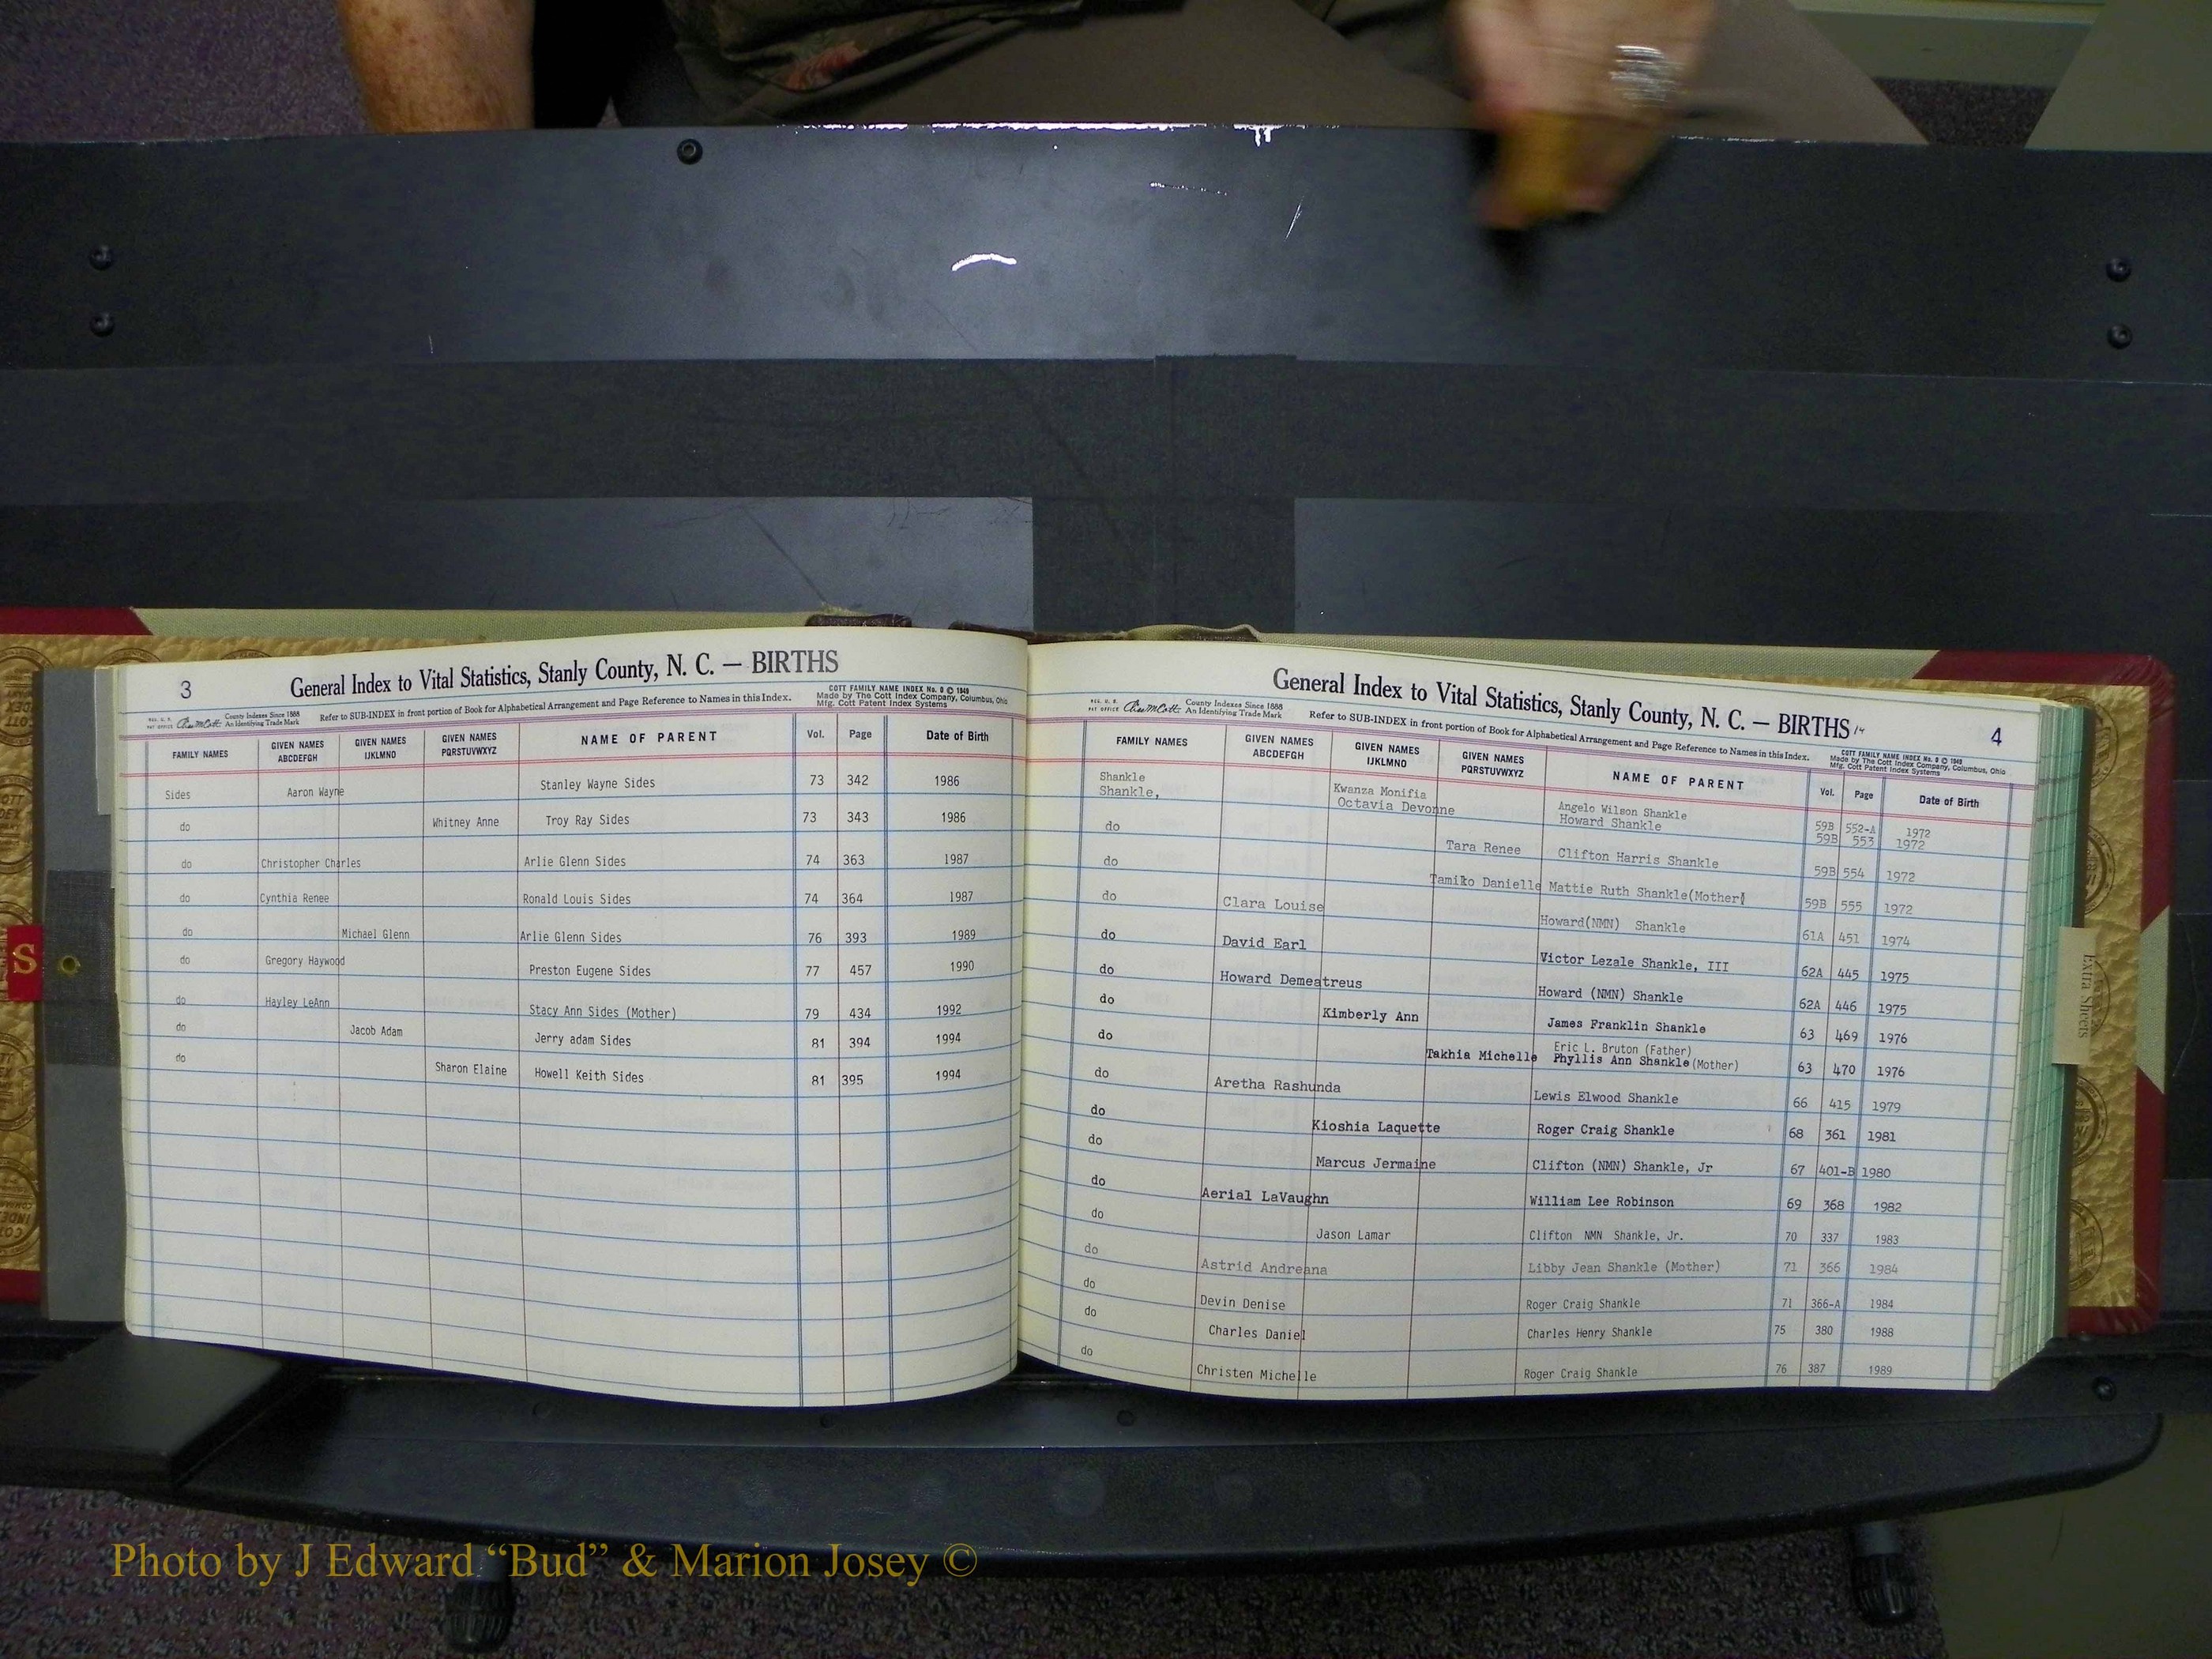 3
General Index to Vital Statistics, Stanly County, N. C. — BIRTHS
COTT FAMILY NAME INDEX No. 0 © 1949
Made by The Cott Index Company, Columbus, Ohio
Mfg. Cott Patent Index Systems
REG. U. S. PAT OFFICE
County Indexes Since 1888
An Identifying Trade Mark
Refer to SUB-INDEX in front portion of Book for Alphabetical Arrangement and Page Reference to Names in this Index.
FAMILY NAMES GIVEN NAMES ABCDEFGH GIVEN NAMES IJKLMNO GIVEN NAMES PQRSTUVWXYZ NAME OF PARENT Vol. Page Date of Birth
Sides Aaron Wayne Stanley Wayne Sides 73 342 1986
do Whitney Anne Troy Ray Sides 73 343 1986
do Christopher Charles Arlie Glenn Sides 74 363 1987
do Cynthia Renee Ronald Louis Sides 74 364 1987
do Michael Glenn Arlie Glenn Sides 76 393 1989
do Gregory Haywood Preston Eugene Sides 77 457 1990
do Hayley LeAnn Stacy Ann Sides (Mother) 79 434 1992
do Jacob Adam Jerry adam Sides 81 394 1994
do Sharon Elaine Howell Keith Sides 81 395 1994
S
General Index to Vital Statistics, Stanly County, N. C. — BIRTHS 14
4
REG. U. S. PAT OFFICE
County Indexes Since 1888
An Identifying Trade Mark
Refer to SUB-INDEX in front portion of Book for Alphabetical Arrangement and Page Reference to Names in this Index.
COTT FAMILY NAME INDEX No. 0 © 1949
Made by The Cott Index Company, Columbus, Ohio
Mfg. Cott Patent Index Systems
FAMILY NAMES GIVEN NAMES ABCDEFGH GIVEN NAMES IJKLMNO GIVEN NAMES PQRSTUVWXYZ NAME OF PARENT Vol. Page Date of Birth
Shankle Kwanza Monifia Angelo Wilson Shankle 59B 552-A 1972
Shankle, Octavia Devonne Howard Shankle 59B 553 1972
do Tara Renee Clifton Harris Shankle 59B 554 1972
do Tamiko Danielle Mattie Ruth Shankle(Mother) 59B 555 1972
do Clara Louise Howard(NMN) Shankle 61A 451 1974
do David Earl Victor Lezale Shankle, III 62A 445 1975
do Howard Demeatreus Howard (NMN) Shankle 62A 446 1975
do Kimberly Ann James Franklin Shankle 63 469 1976
Eric L. Bruton (Father)
do Takhia Michelle Phyllis Ann Shankle(Mother) 63 470 1976
do Aretha Rashunda Lewis Elwood Shankle 66 415 1979
do Kioshia Laquette Roger Craig Shankle 68 361 1981
do Marcus Jermaine Clifton (NMN) Shankle, Jr 67 401-B 1980
do Aerial LaVaughn William Lee Robinson 69 368 1982
do Jason Lamar Clifton NMN Shankle, Jr. 70 337 1983
do Astrid Andreana Libby Jean Shankle (Mother) 71 366 1984
do Devin Denise Roger Craig Shankle 71 366-A 1984
do Charles Daniel Charles Henry Shankle 75 380 1988
do Christen Michelle Roger Craig Shankle 76 387 1989
Extra Sheets
Photo by J Edward “Bud” & Marion Josey ©